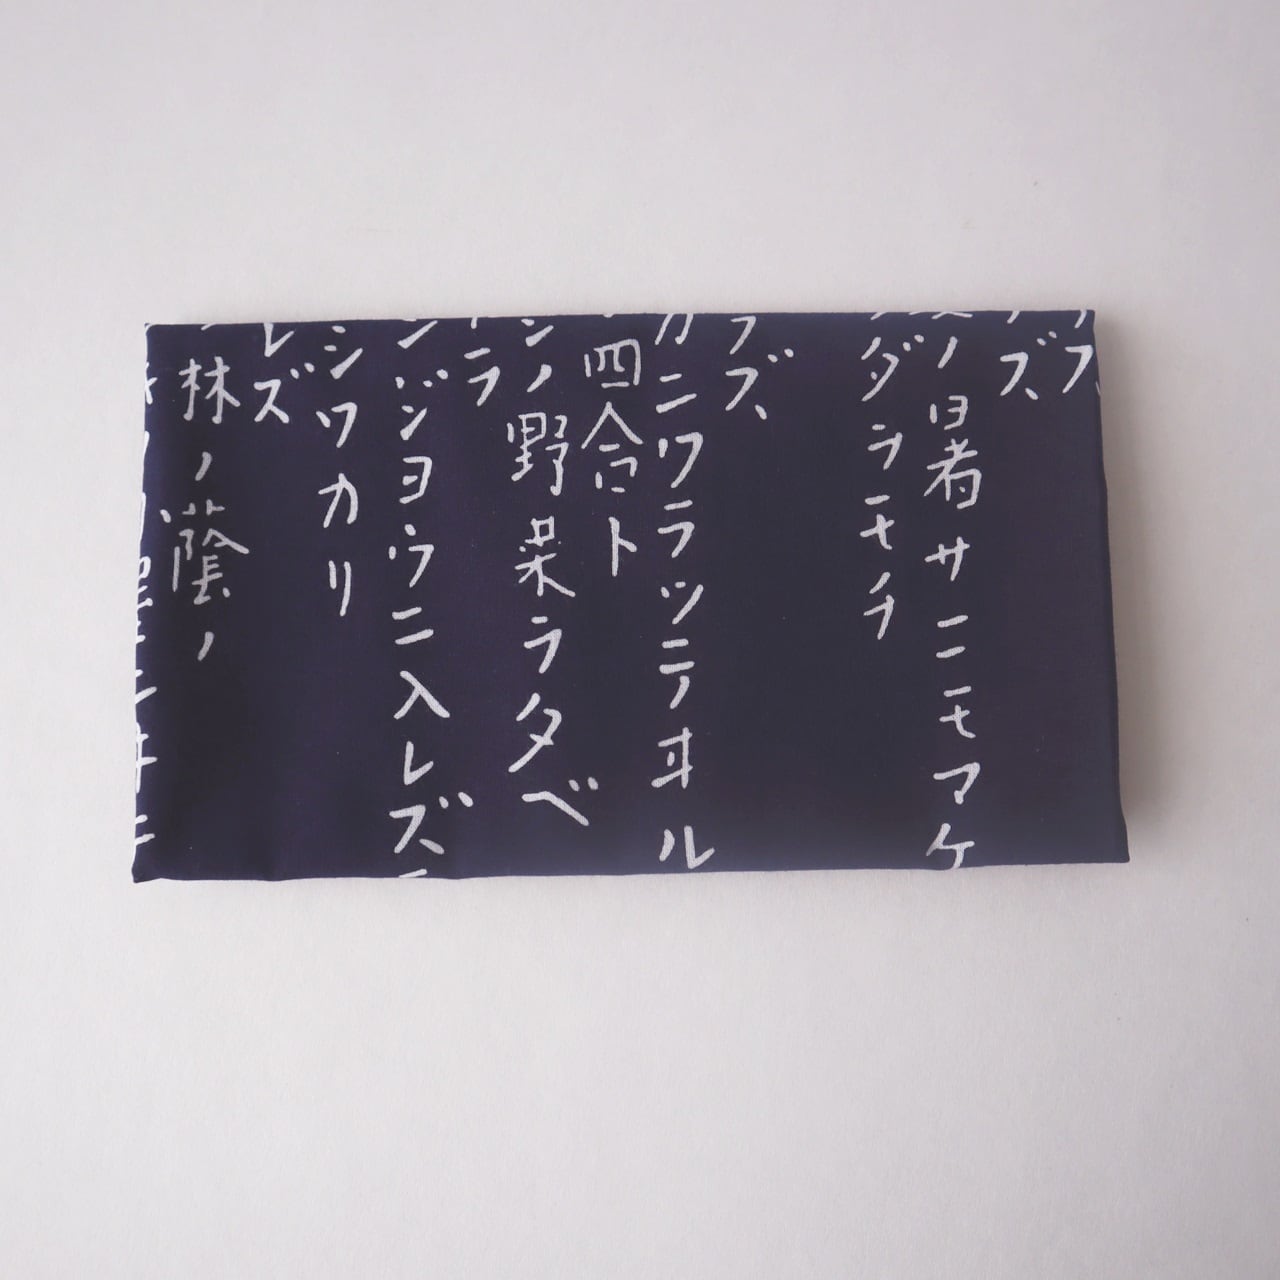 ズ
ノ暑サニモマケ
ダラモチ
ラズ、
カニワラッテヰル
四合ト
ノ野菜ヲタベ
ラ
ジョウニ入レズ
シワカリ
レズ
林ノ蔭ノ